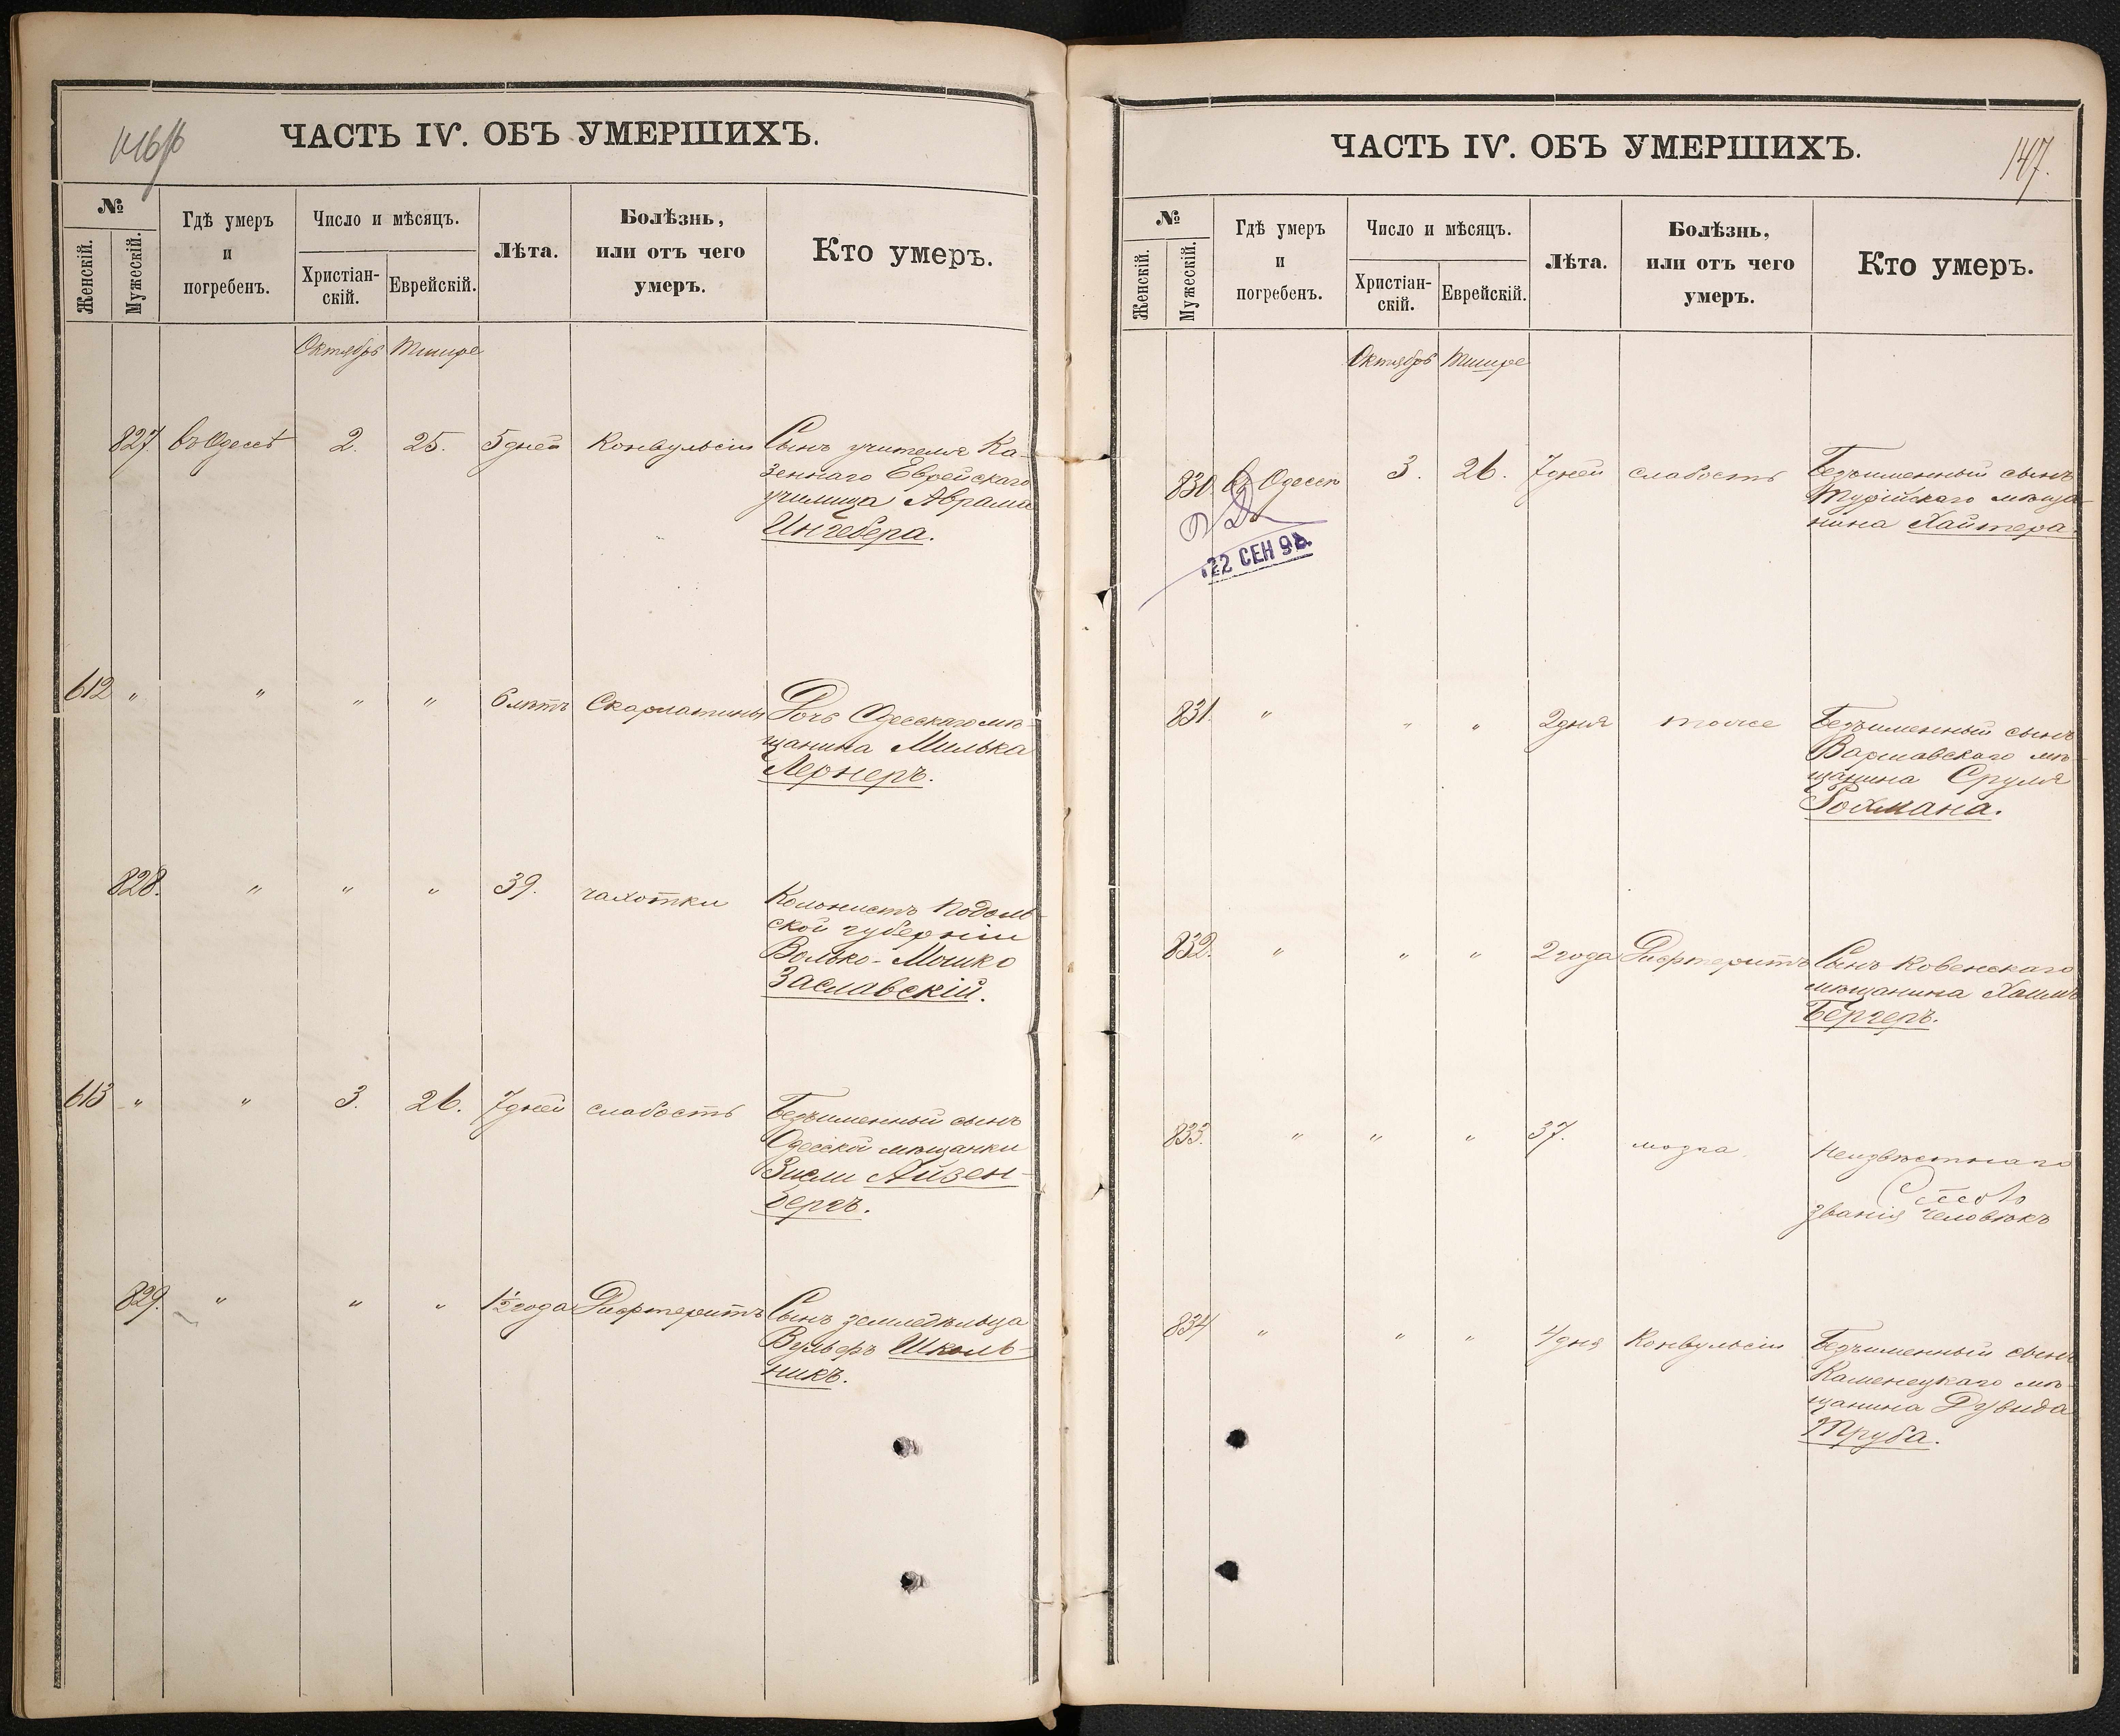 ЧАСТЬ IV. ОБЪ УМЕРШИХЪ.
№
Женскій.
Мужескій.
Гдѣ умеръ
и
погребенъ.
Число и мѣсяцъ.
Христіан-
скій.
Еврейскій.
Лѣта.
Болѣзнь,
или отъ чего
умеръ.
Кто умеръ.
Октябрь Тишре
827. въ Одессѣ 2. 25. 5 дней Конвульсіи Сынъ учителя Ка-
зеннаго Еврейскаго
училища Аврама
Ингебера.
612 " " " " 6 лѣтъ Скарлатины Дочь Одесскаго мѣ-
щанина Милька
Лернеръ.
828. " " " 39. чахотки Колонистъ Подоль-
ской губерніи
Волько-Мошко
Заславскій.
613 " " 3. 26. 7 дней слабость Безъименный сынъ
Одесской мѣщанки
Зисли Айзен-
бергъ.
829. " " " 1½ года Дифтеритъ Сынъ земледѣльца
Вульфъ Школь-
никъ.
ЧАСТЬ IV. ОБЪ УМЕРШИХЪ.
147.
№
Женскій.
Мужескій.
Гдѣ умеръ
и
погребенъ.
Число и мѣсяцъ.
Христіан-
скій.
Еврейскій.
Лѣта.
Болѣзнь,
или отъ чего
умеръ.
Кто умеръ.
Октябрь Тишре
830 въ Одессѣ 3. 26. 7 дней слабость Безъименный сынъ
мѣща-
нина Хаймера.
22 СЕН 98.
831. " " " 2 дня тоже Безъименный сынъ
Варшавскаго мѣ-
щанина Сруля
Рохмана.
832. " " " 2 года Дифтеритъ Сынъ Ковенскаго
мѣщанина Хаимъ
Бергеръ.
833. " " " 37. мозга Неизвѣстнаго
званія человѣкъ
834 " " " 4 дня Конвульсіи Безъименный сынъ
Каменецкаго мѣ-
щанина Дувида
Труба.